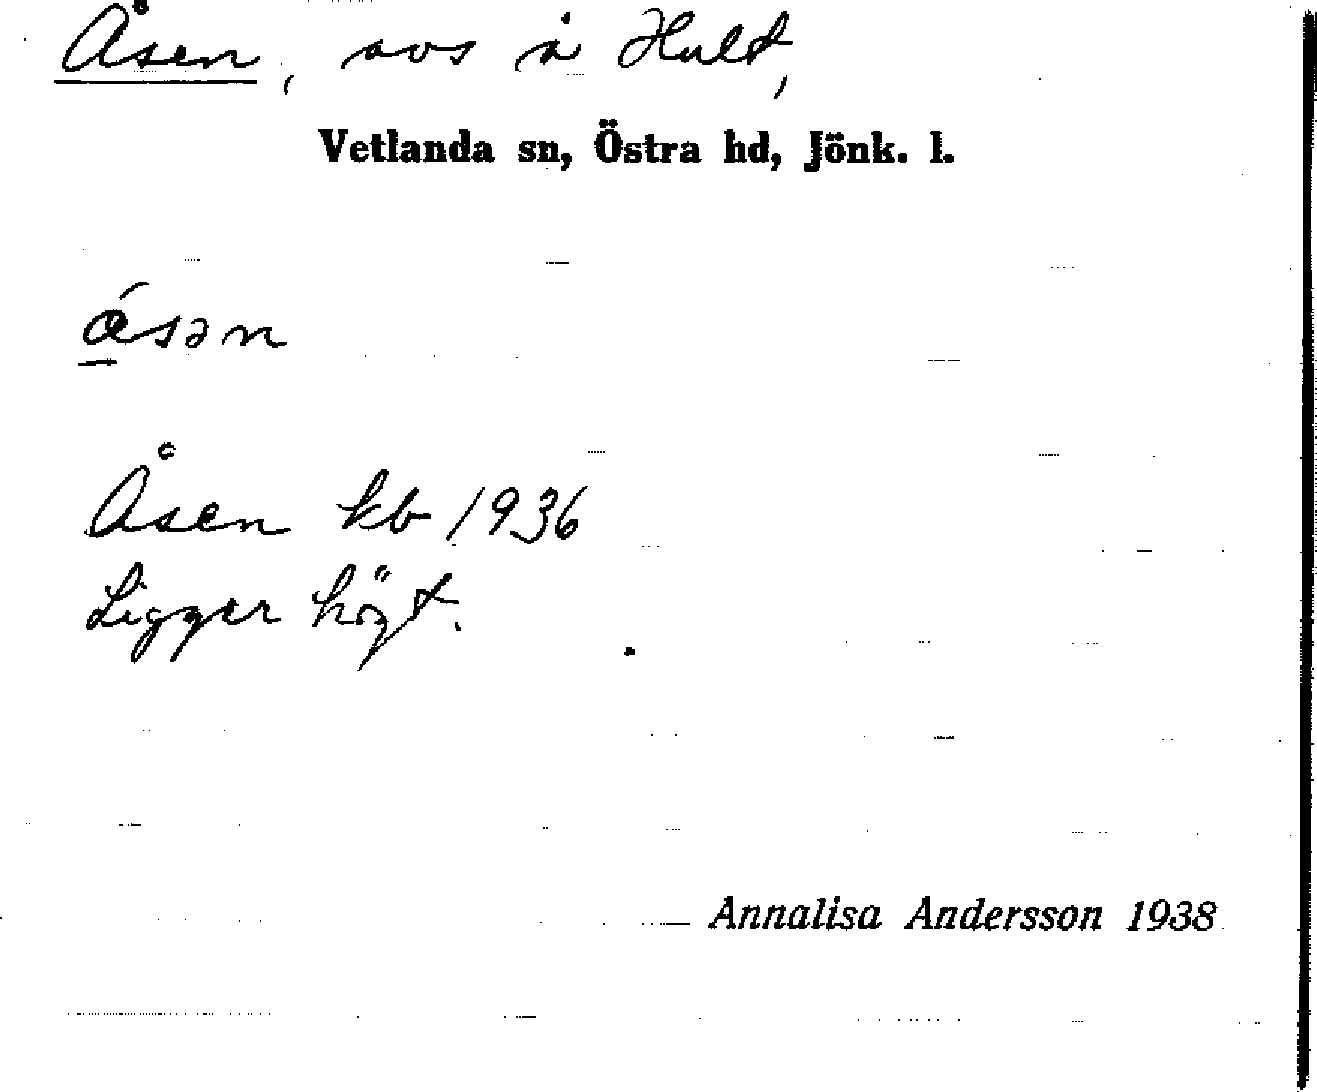 Åsen, avs å Hult,
Vetlanda sn, Östra hd, Jönk. l.
ásən
Åsen kb 1936
Ligger högt.
Annalisa Andersson 1938